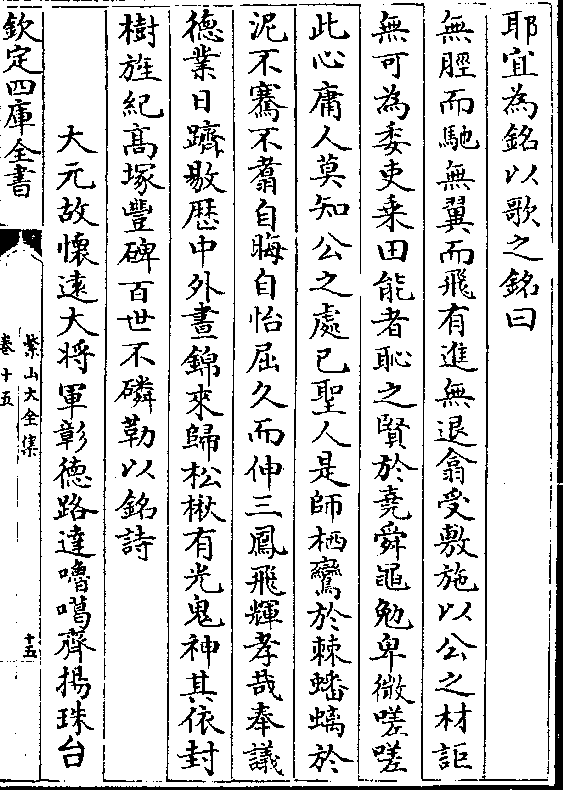 耶宜為銘以歌之銘曰
無脛而馳無翼而飛有進無退翕受敷施以公之材詎
無可為委吏乗田能者恥之賢於堯舜黽勉卑微嗟嗟
此心庸人莫知公之處己聖人是師栖鸞於棘蟠螭於
泥不騫不翥自晦自怡屈久而伸三鳳飛輝孝哉奉議
德業日躋敭歴中外晝錦來歸松楸有光鬼神其依封
樹旌紀髙塚豐碑百世不磷勒以銘詩
大元故懷逺大將軍彰德路達嚕噶齊揚珠台
欽定四庫全書
紫山大全集
卷十五
十五